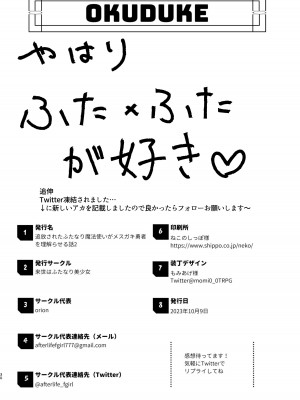 OKUDUKE
やはり
ふた×ふた
が好き♡
追伸
Twitter凍結されました…
↓に新しいアカを記載しましたので良かったらフォローお願いします〜
1 発行名
追放されたふたなり魔法使いがメスガキ勇者
を理解らせる話2
2 発行サークル
来世はふたなり美少女
3 サークル代表
orion
4 サークル代表連絡先（メール）
afterlifefgirl777@gmail.com
5 サークル代表連絡先（Twitter）
@afterlife_fgirl
6 印刷所
ねこのしっぽ様
https://www.shippo.co.jp/neko/
7 装丁デザイン
もみあげ様
Twitter@momi0_0TRPG
8 発行日
2023年10月9日
感想待ってます！
気軽にTwitterで
リプライしてね